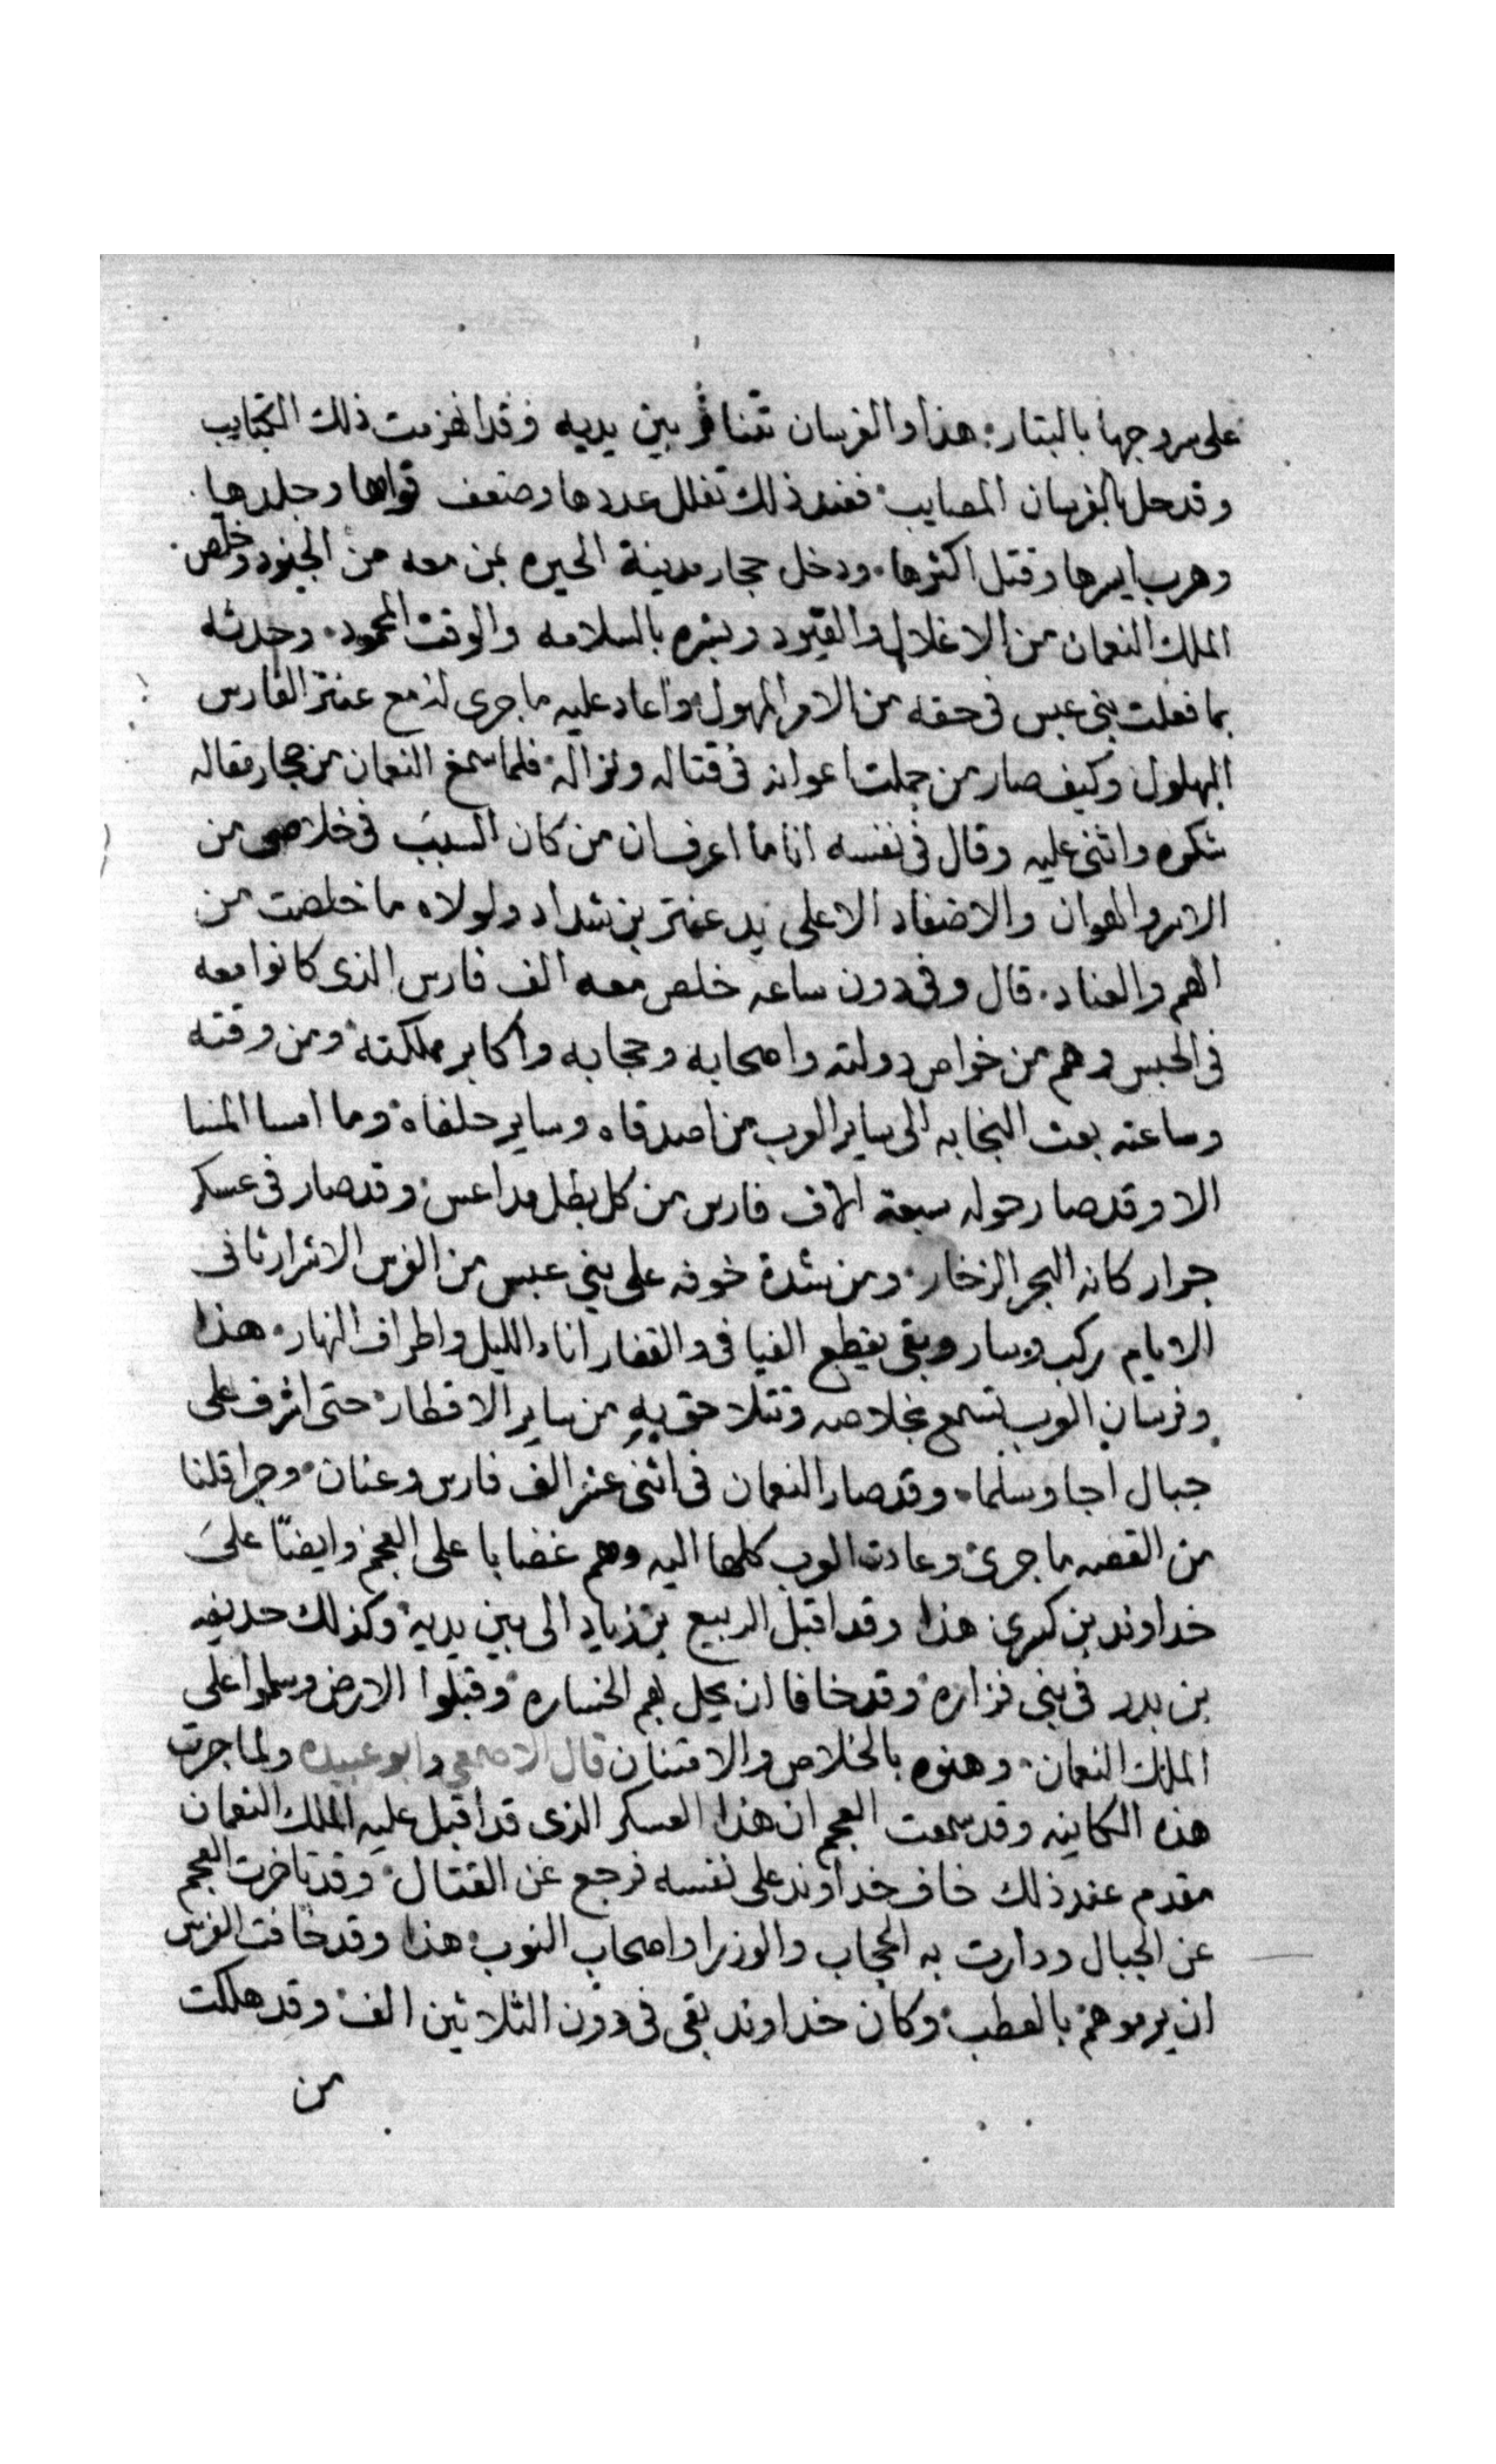 على سروجها بالبتار. هذا والفرسان تتنافر بين يديه وقد انهزمت ذلك الكتايب
وقد حل بالفرسان المصايب. فعند ذلك تقلل عددها وضعف قواها وجلدها.
وهرب ايسرها وقتل اكثرها. ودخل حجار مدينة الحيره بمن معه من الجنود وخلص
الملك النعمان من الاغلال والقيود وبشره بالسلامه والوقت المحمود. وحدثه
بما فعلت بني عبس في حقه من الامر المهول واعاد عليه ما جرى له مع عنتر الفارس
البهلول وكيف صار من جملت اعوانه في قتاله ونزاله. فلما سمع النعمان من حجار مقاله
شكره واثنى عليه وقال في نفسه انا ما اعرف ان من كان السبب في خلاصي من
الاسر والهوان والاضفاد الا على يد عنتر بن شداد ولولاه ما خلصت من
الهم والعناد. قال وفي دون ساعه خلص معه الف فارس الذي كانوا معه
في الحبس وهم من خواص دولته واصحابه وحجابه واكابر مملكته ومن وقته
وساعته بعث النجابه الى ساير العرب من اصدقاه وساير حلفاه وما امسا المسا
الا وقد صار حوله سبعة الاف فارس من كل بطل مداعس. وقد صار في عسكر
جرار كانه البحر الزخار. ومن شدة خوفه على بني عبس من الفرس الاشرار ثاني
الايام ركب وسار وبقي يقطع الفيافي والقفار اناء الليل واطراف النهار. هذا
وفرسان العرب تسمع بخلاصه وتتلاحق به من ساير الاقطار. حتى اشرف على
جبال اجا وسلما. وقد صار النعمان في اثني عشر الف فارس وعنان. وجرا قلنا
من القصه ما جرى وعادت العرب كلها اليه وهم غضابا على العجم وايضًا على
خداوند بن كسرى هذا وقد اقبل الربيع بن زياد الى بين يديه وكذلك حديفه
بن بدر في بني فزاره وقد خافا ان يحل بهم الخساره وقبلوا الارض وسلموا على
الملك النعمان. وهنوه بالخلاص والامتنان قال الاصمعي وابو عبيده ولما جرت
هذه الكاينه وقد سمعت العجم ان هذا العسكر الذي قد اقبل عليه الملك النعمان
مقدم عند ذلك خاف خداوند على نفسه فرجع عن القتال. وقد تاخرت العجم
عن الجبال ودارت به الحجاب والوزرا واصحاب النوب هذا وقد خافت الفرس
ان يرموهم بالعطب وكان خداوند بقي في دون الثلاثين الف. وقد هلكت
من